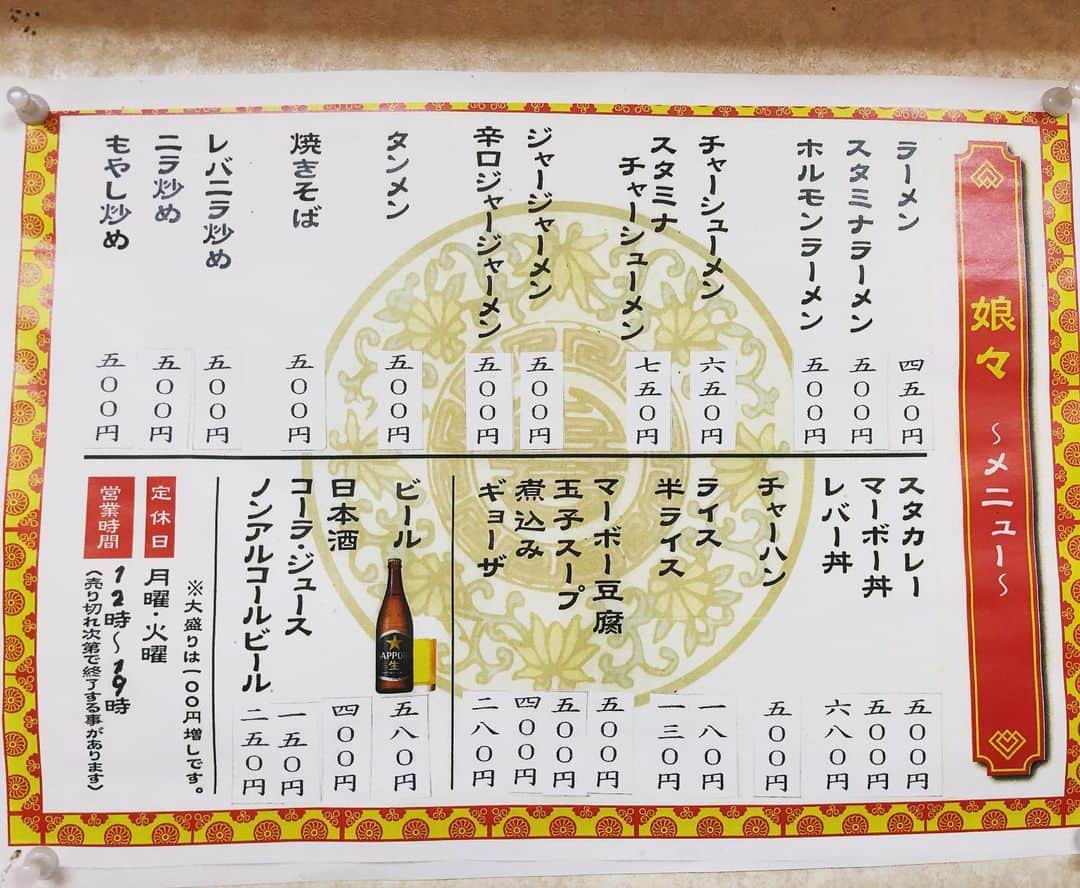 娘々 ～メニュー～
ラーメン 四五〇円
スタミナラーメン 五〇〇円
ホルモンラーメン 五〇〇円
チャーシューメン 六五〇円
スタミナ
チャーシューメン 七五〇円
ジャージャーメン 五〇〇円
辛口ジャージャーメン 五〇〇円
タンメン 五〇〇円
焼きそば 五〇〇円
レバニラ炒め 五〇〇円
ニラ炒め 五〇〇円
もやし炒め 五〇〇円
スタカレー 五〇〇円
マーボー丼 五〇〇円
レバー丼 六八〇円
チャーハン 五〇〇円
ライス 一八〇円
半ライス 一三〇円
マーボー豆腐 五〇〇円
玉子スープ 五〇〇円
煮込み 四〇〇円
ギョーザ 二八〇円
ビール 五八〇円
SAPPORO
生
日本酒 四〇〇円
コーラ・ジュース 一五〇円
ノンアルコールビール 二五〇円
※大盛りは一〇〇円増しです。
定休日 月曜・火曜
営業時間 12時～19時
（売り切れ次第で終了する事があります）